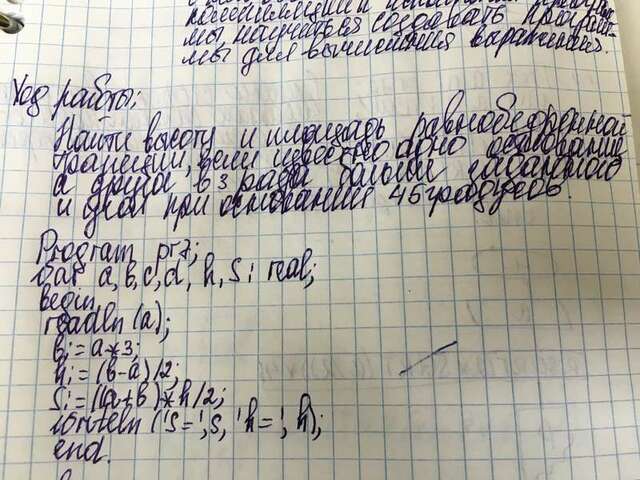 компиляции и исполнения програм-
мы научиться создавать програм-
мы для вычисления выражений.
Ход работы:
Найти высоту и площадь равнобедренной
трапеции, если известно одно основание
а другая в 3 раза больше заданного
и угол при основании 45 градусов.
Program pr7;
Var a, b, c, d, h, S: real;
begin
readln (a);
b:=a*3;
h:=(b-a)/2;
S:=(a+b)*h/2;
writeln ('S=', S, 'h=', h);
end.